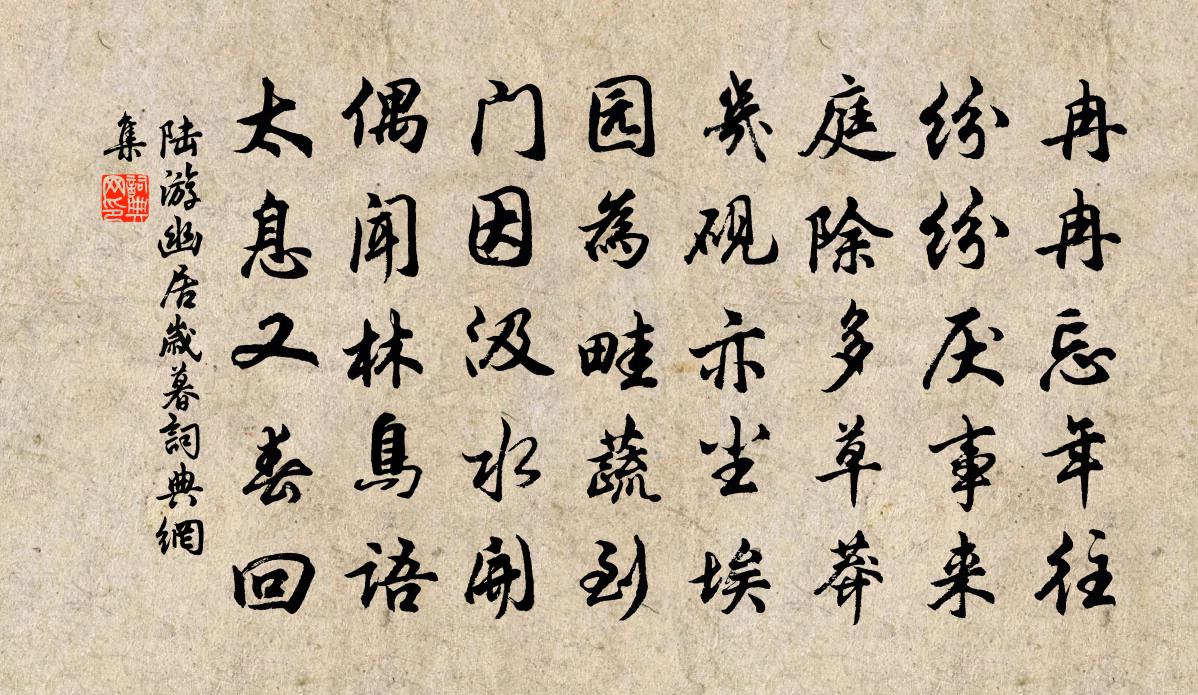 冉冉忘年往
纷纷厌事来
庭除多草莽
幾砚亦尘埃
园為畦蔬到
门因汲水開
偶闻林鳥語
太息又春回
陆游幽居歲暮詞典網
集
詞典
网印